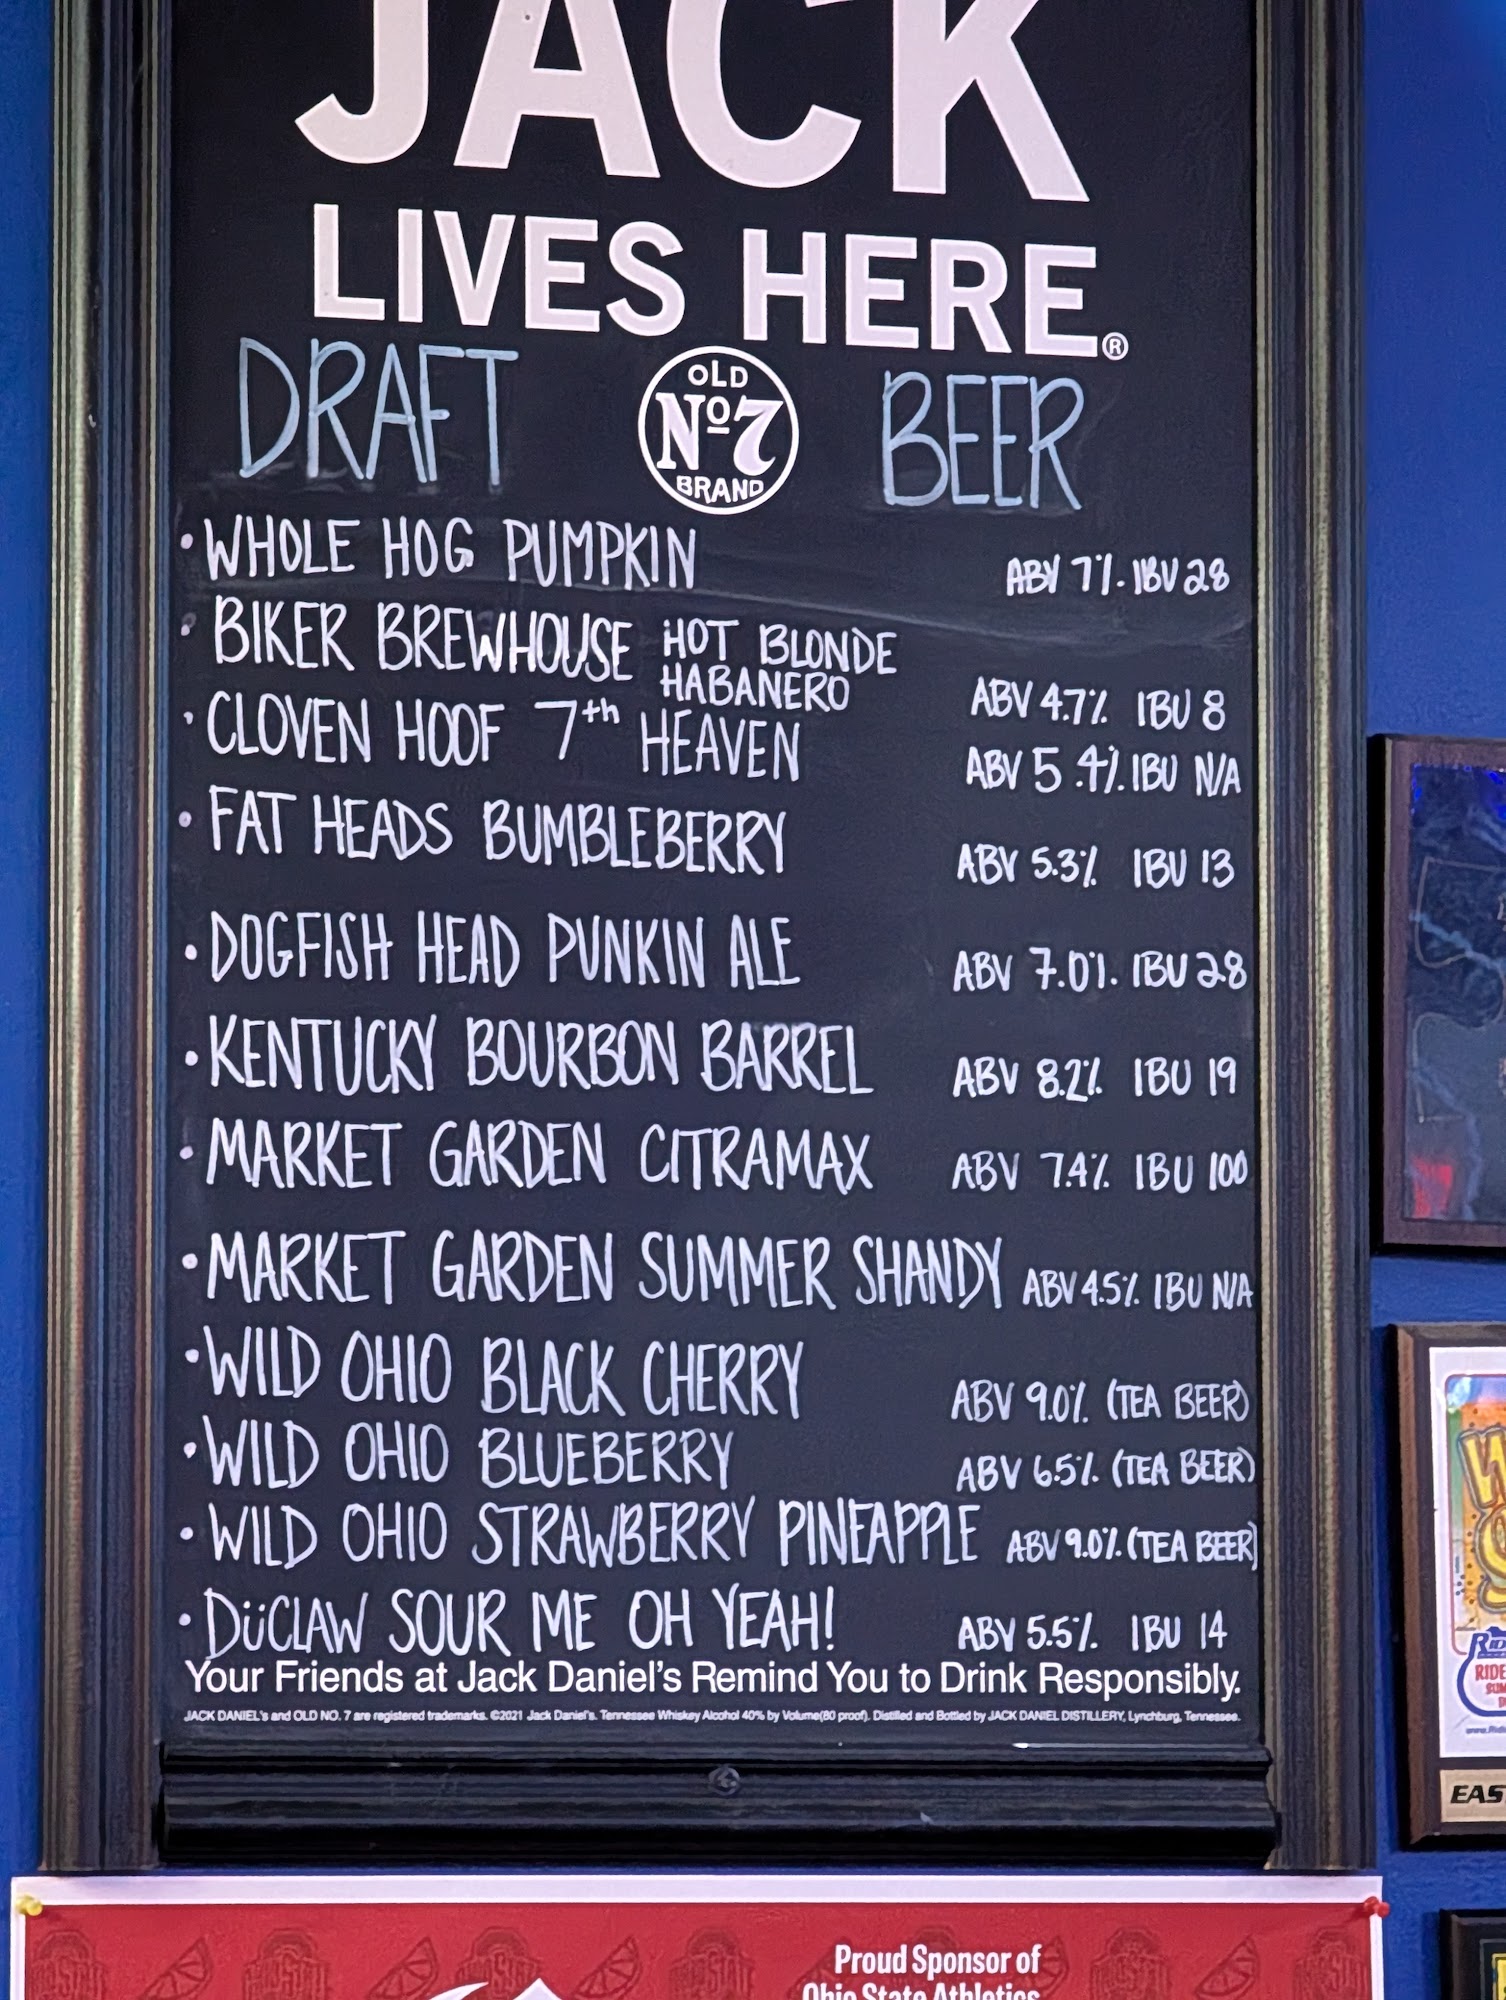 JACK
LIVES HERE®
DRAFT OLD Nº7 BRAND BEER
• WHOLE HOG PUMPKIN ABV 7% IBU 28
• BIKER BREWHOUSE HOT BLONDE
HABANERO ABV 4.7% IBU 8
• CLOVEN HOOF 7th HEAVEN ABV 5.4% IBU N/A
• FAT HEADS BUMBLEBERRY ABV 5.3% IBU 13
• DOGFISH HEAD PUNKIN ALE ABV 7.0% IBU 28
• KENTUCKY BOURBON BARREL ABV 8.2% IBU 19
• MARKET GARDEN CITRAMAX ABV 7.4% IBU 100
• MARKET GARDEN SUMMER SHANDY ABV 4.5% IBU N/A
• WILD OHIO BLACK CHERRY ABV 9.0% (TEA BEER)
• WILD OHIO BLUEBERRY ABV 6.5% (TEA BEER)
• WILD OHIO STRAWBERRY PINEAPPLE ABV 9.0% (TEA BEER)
• DüCLAW SOUR ME OH YEAH! ABV 5.5% IBU 14
Your Friends at Jack Daniel's Remind You to Drink Responsibly.
JACK DANIEL's and OLD NO. 7 are registered trademarks. ©2021 Jack Daniel's. Tennessee Whiskey Alcohol 40% by Volume(80 proof). Distilled and Bottled by JACK DANIEL DISTILLERY, Lynchburg, Tennessee.
Proud Sponsor of
Ohio State Athletics
RIDE
EAS